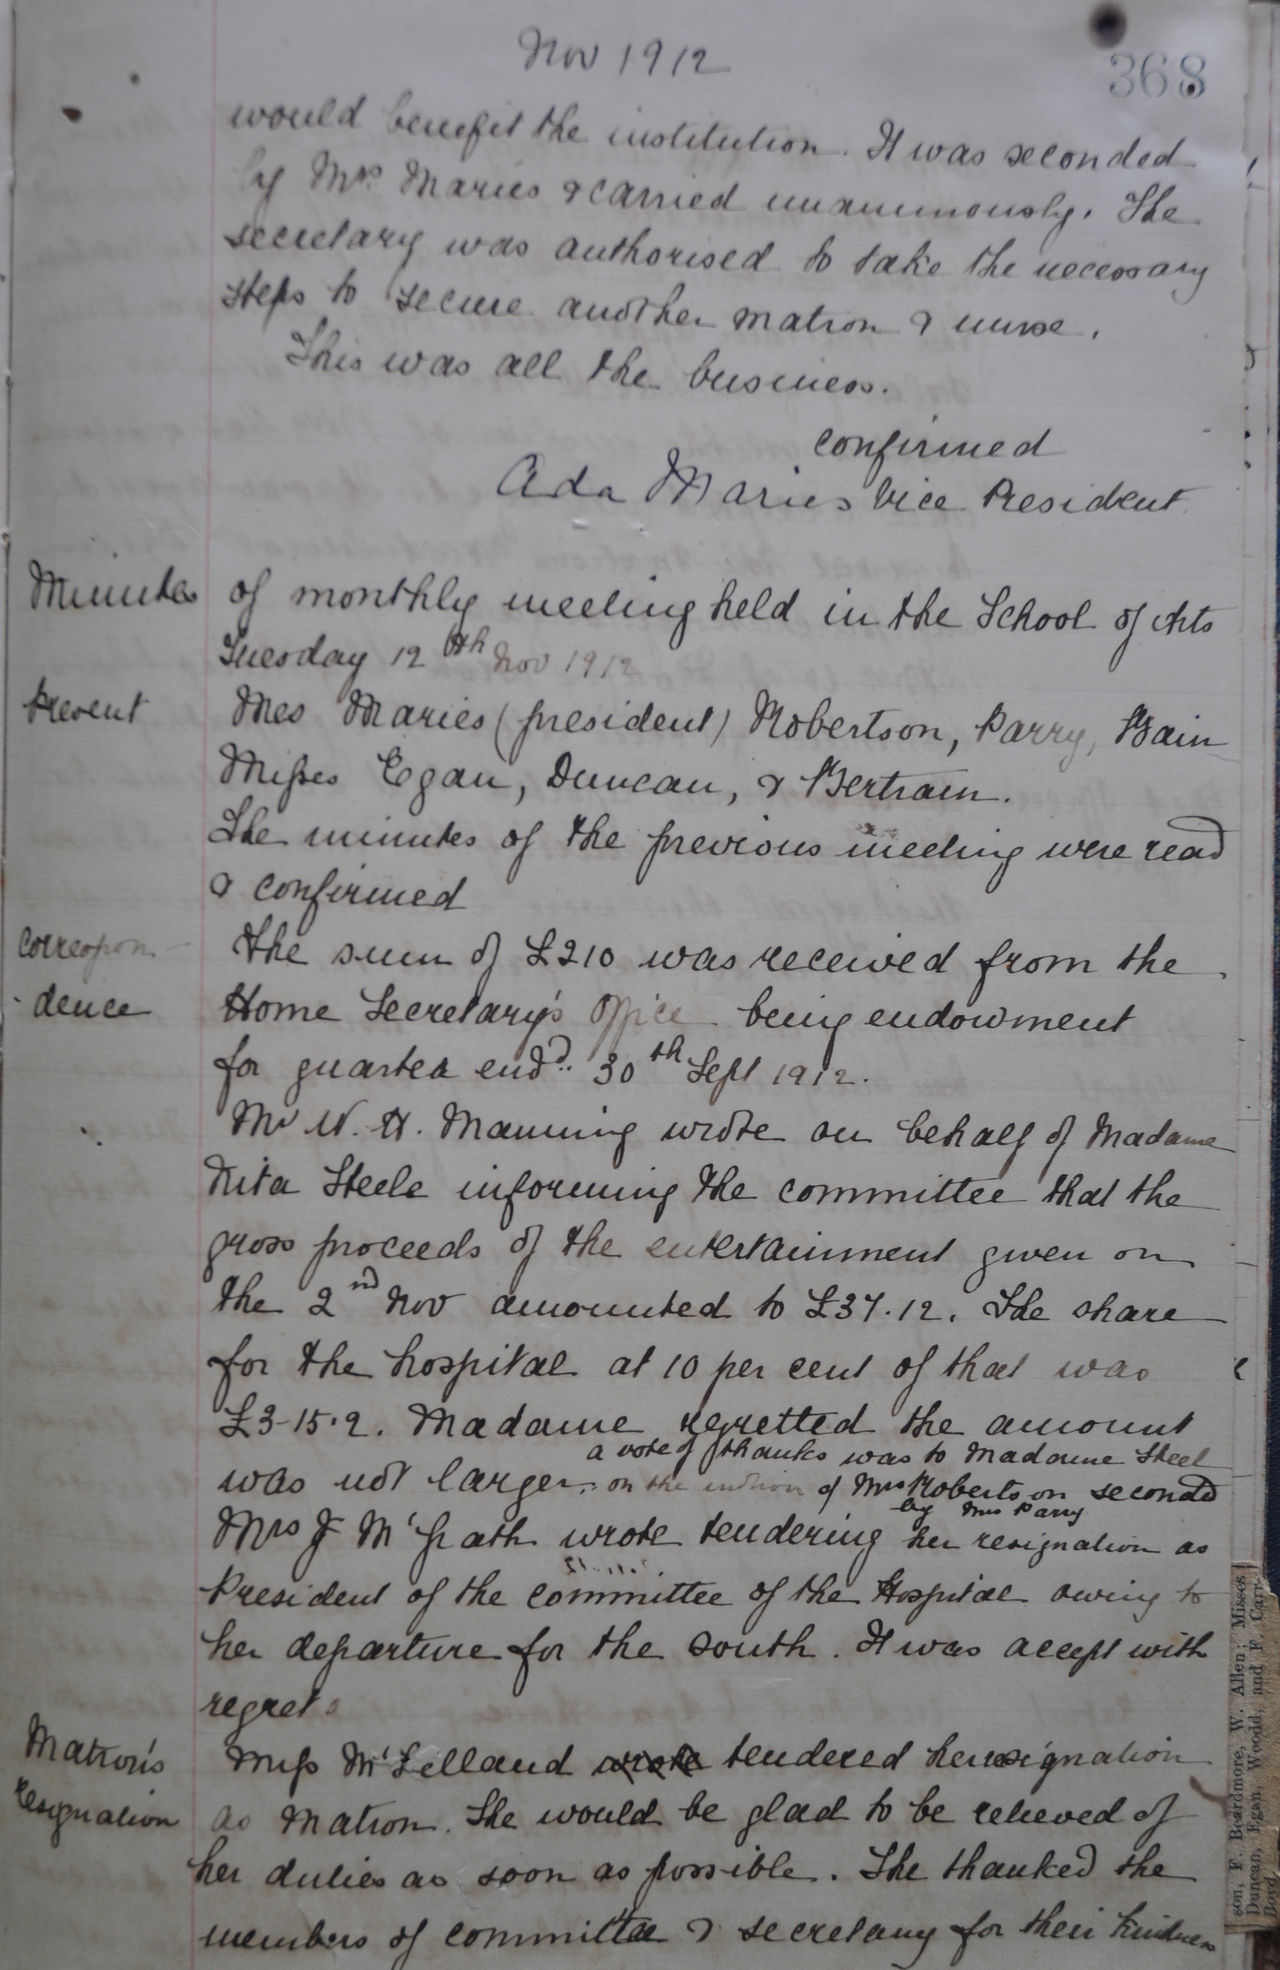 Nov 1912
368
would benefit the institution. It was seconded
by Mrs Maries & carried unanimously. The
secretary was authorised to take the necessary
steps to secure another matron & nurse.
This was all the business.
confirmed
Ada Maries Vice President
Minutes of monthly meeting held in the School of Arts
Tuesday 12th Nov 1912
Present Mes Maries (president) Robertson, Parry, Bain
Misses Egan, Duncan, & Bertram.
The minutes of the previous meeting were read
& confirmed
Correspon- The sum of £210 was received from the
-dence Home Secretary's Office being endowment
for quarter endd. 30th Sept 1912.
Mr W. H. Manning wrote on behalf of Madame
Nita Steele informing the committee that the
gross proceeds of the entertainment given on
the 2nd Nov amounted to £37.12. The share
for the hospital at 10 per cent of that was
£3-15.2. Madame regretted the amount
a vote of thanks was to Madame Steel
was not larger. on the motion of Mrs Robertson seconded
by Mrs Parry
Mrs J McGrath wrote tendering her resignation as
President of the committee of the Hospital owing to
her departure for the south. It was accept with
regret
Matron's Miss McLelland wrote tendered her resignation
resignation as Matron. She would be glad to be relieved of
her duties as soon as possible. She thanked the
members of committee & secretary for their kindness
son, F. Beardmore, W. Allen; Misses
Duncan, Egan, Woodd, and F. Carr-
Boyd